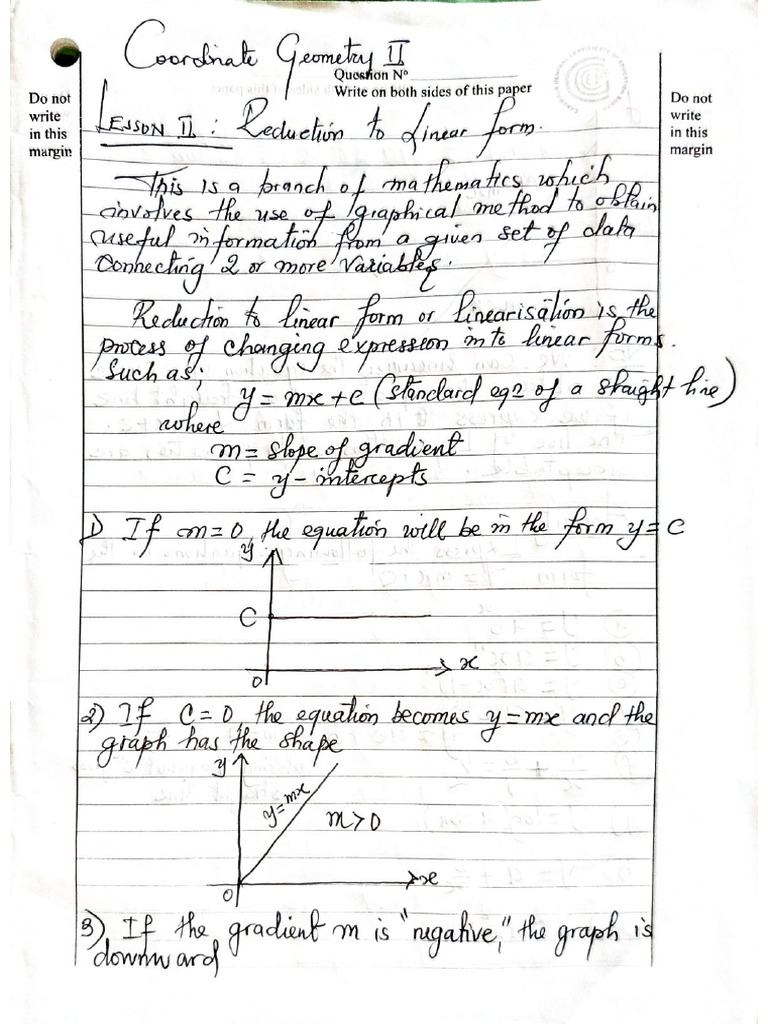 Coordinate Geometry II
Question Nº
Write on both sides of this paper
Do not
write
in this
margin
Do not
write
in this
margin
LESSON II : Reduction to Linear form.
This is a branch of mathematics which
involves the use of graphical method to obtain
useful information from a given set of data
Connecting 2 or more variables.
Reduction to linear form or linearisation is the
process of changing expression into linear forms.
Such as;
y = mx + c (standard eq2 of a straight line)
where
m = slope of gradient
C = y - intercepts
1) If m = 0, the equation will be in the form y = C
y
C
x
0
2) If C = 0, the equation becomes y = mx and the
graph has the shape
y
y = mx
m > 0
x
0
3) If the gradient m is "negative," the graph is
downward